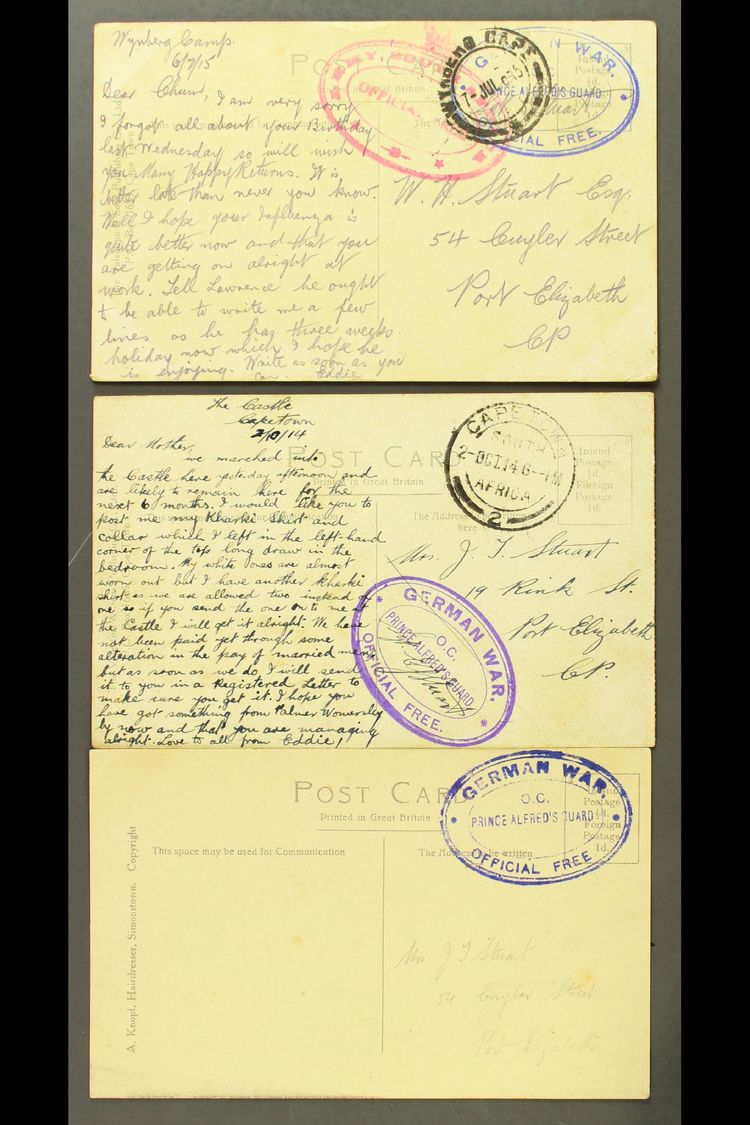 Wynberg Camp.
6/7/15
Dear Chum, I am very sorry
I forgot all about your Birthday
last Wednesday so will wish
you Many Happy Returns. It is
better late than never you know.
Well I hope your Influenza is
quite better now and that you
are getting on alright at
work. Tell Lawrence he ought
to be able to write me a few
lines as he has three weeks
holiday now which I hope he
is enjoying. Write as soon as you
can. Eddie
POST CA
OFFICIAL
WYNBERG CAPE
7 JUL 15
N WAR.
PRINCE ALFRED'S GUARD
IAL FREE.
Stuart
W. H. Stuart Esq.
54 Cuyler Street
Port Elizabeth
CP
The Castle
Capetown
2/10/14
Dear Mother,
we marched into
the Castle here yesterday afternoon and
are likely to remain here for the
next 6 months. I would like you to
post me my Kharki shirt and
collar which I left in the left hand
corner of the top long draw in the
bedroom. My white ones are almost
worn out but I have another Kharki
shirt as we are allowed two instead of
one so if you send the one on to me at
the Castle I will get it alright. We have
not been paid yet through some
alteration in the pay of married men
but as soon as we do I will send
it to you in a Registered Letter to
make sure you get it. I hope you
have got something from Palmer
by now and that you are managing
alright. Love to all from Eddie
POST CARD
Printed in Great Britain
The Address
here
CAPE TOWN
SOUTH
2-OCT.14 6-PM
AFRICA
2
Inland
Postage
½d.
Foreign
Postage
1d.
Mrs. J. T. Stuart
19 Rink St.
Port Elizabeth
CP.
GERMAN WAR.
O.C.
PRINCE ALFRED'S GUARD
OFFICIAL FREE.
POST CARD
Printed in Great Britain
This space may be used for Communication
The Address to be written
A. Knopf, Hairdresser, Simonstown. Copyright
GERMAN WAR.
O.C.
PRINCE ALFRED'S GUARD
OFFICIAL FREE
Inland
Postage
½d.
Foreign
Postage
1d.
Mrs J T Stuart
54 Cuyler Street
Port Elizabeth